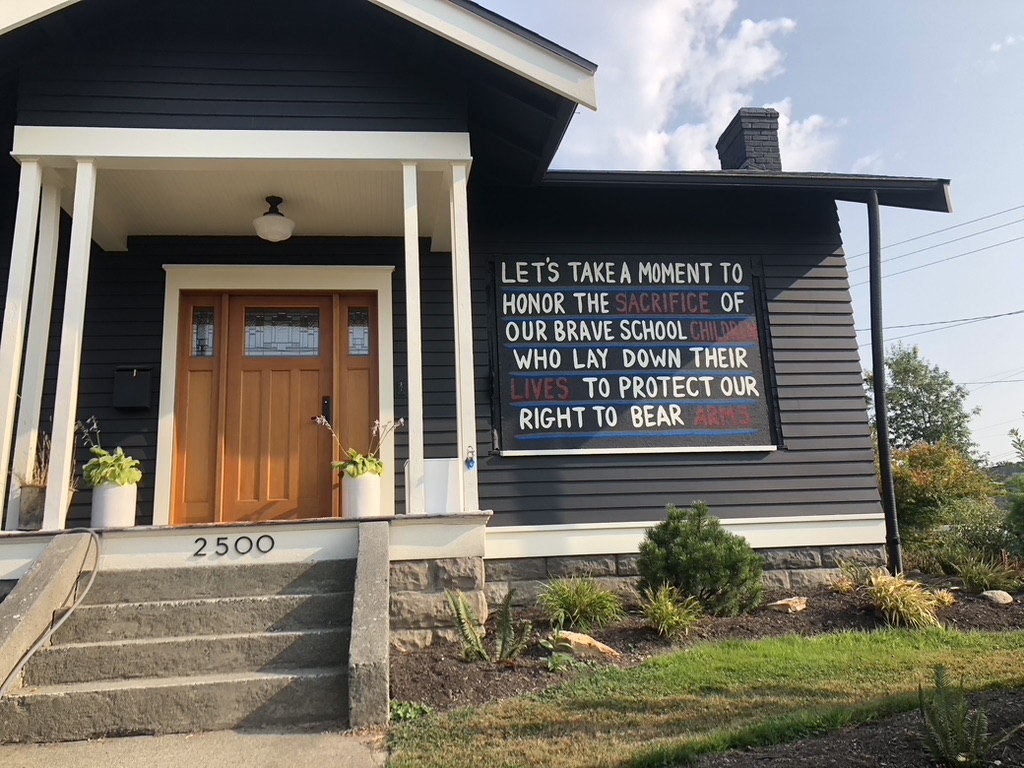 LET'S TAKE A MOMENT TO
HONOR THE SACRIFICE OF
OUR BRAVE SCHOOL CHILDREN
WHO LAY DOWN THEIR
LIVES TO PROTECT OUR
RIGHT TO BEAR ARMS
2500